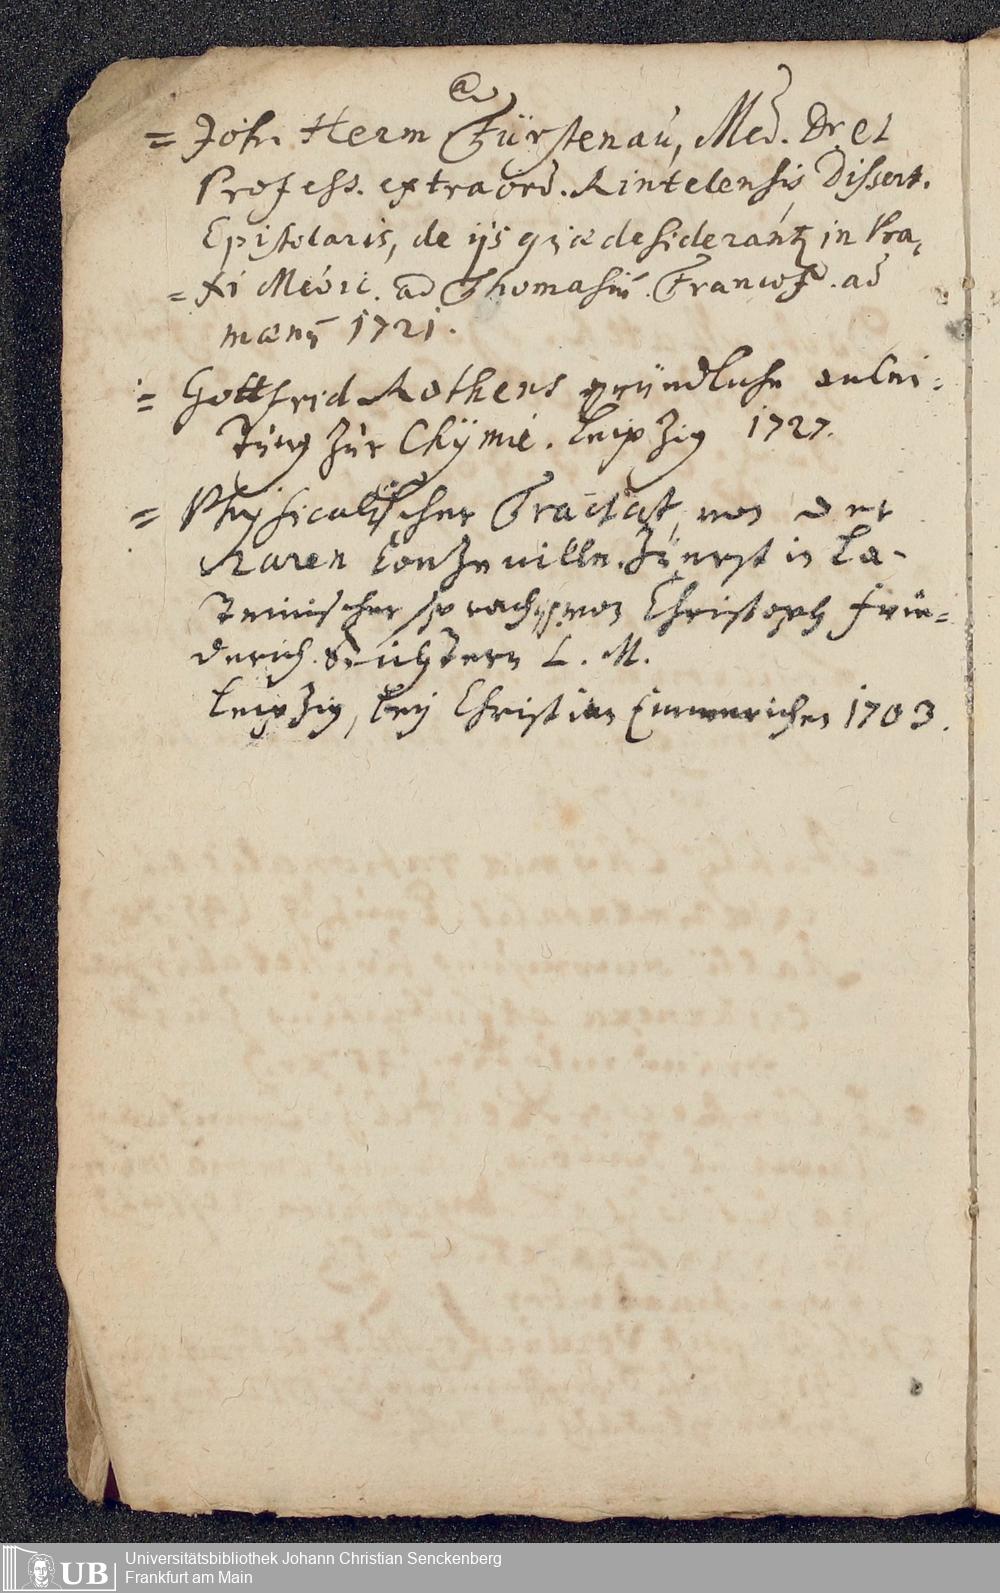 = Joh. Herm Fürstenau, Med. Dr. et
Profess. extraord. Rintelensis Dissert.
Epistolaris, de ijs quæ desiderantz in Pra,
= xi Medic. ad Thomasiū. Francof. ad
mænū 1721.
= Gottfrid Rothens gründliche anlei=
tung zur Chÿmie. Leipzig 1727.
= Physicalischer Tractat, von der
Raren
Zuerst in La-
teinischer sprach von Christoph Frie=
derich L. M.
Leipzig, beÿ Christian Emmerichen 1703.
Universitätsbibliothek Johann Christian Senckenberg
Frankfurt am Main
UB